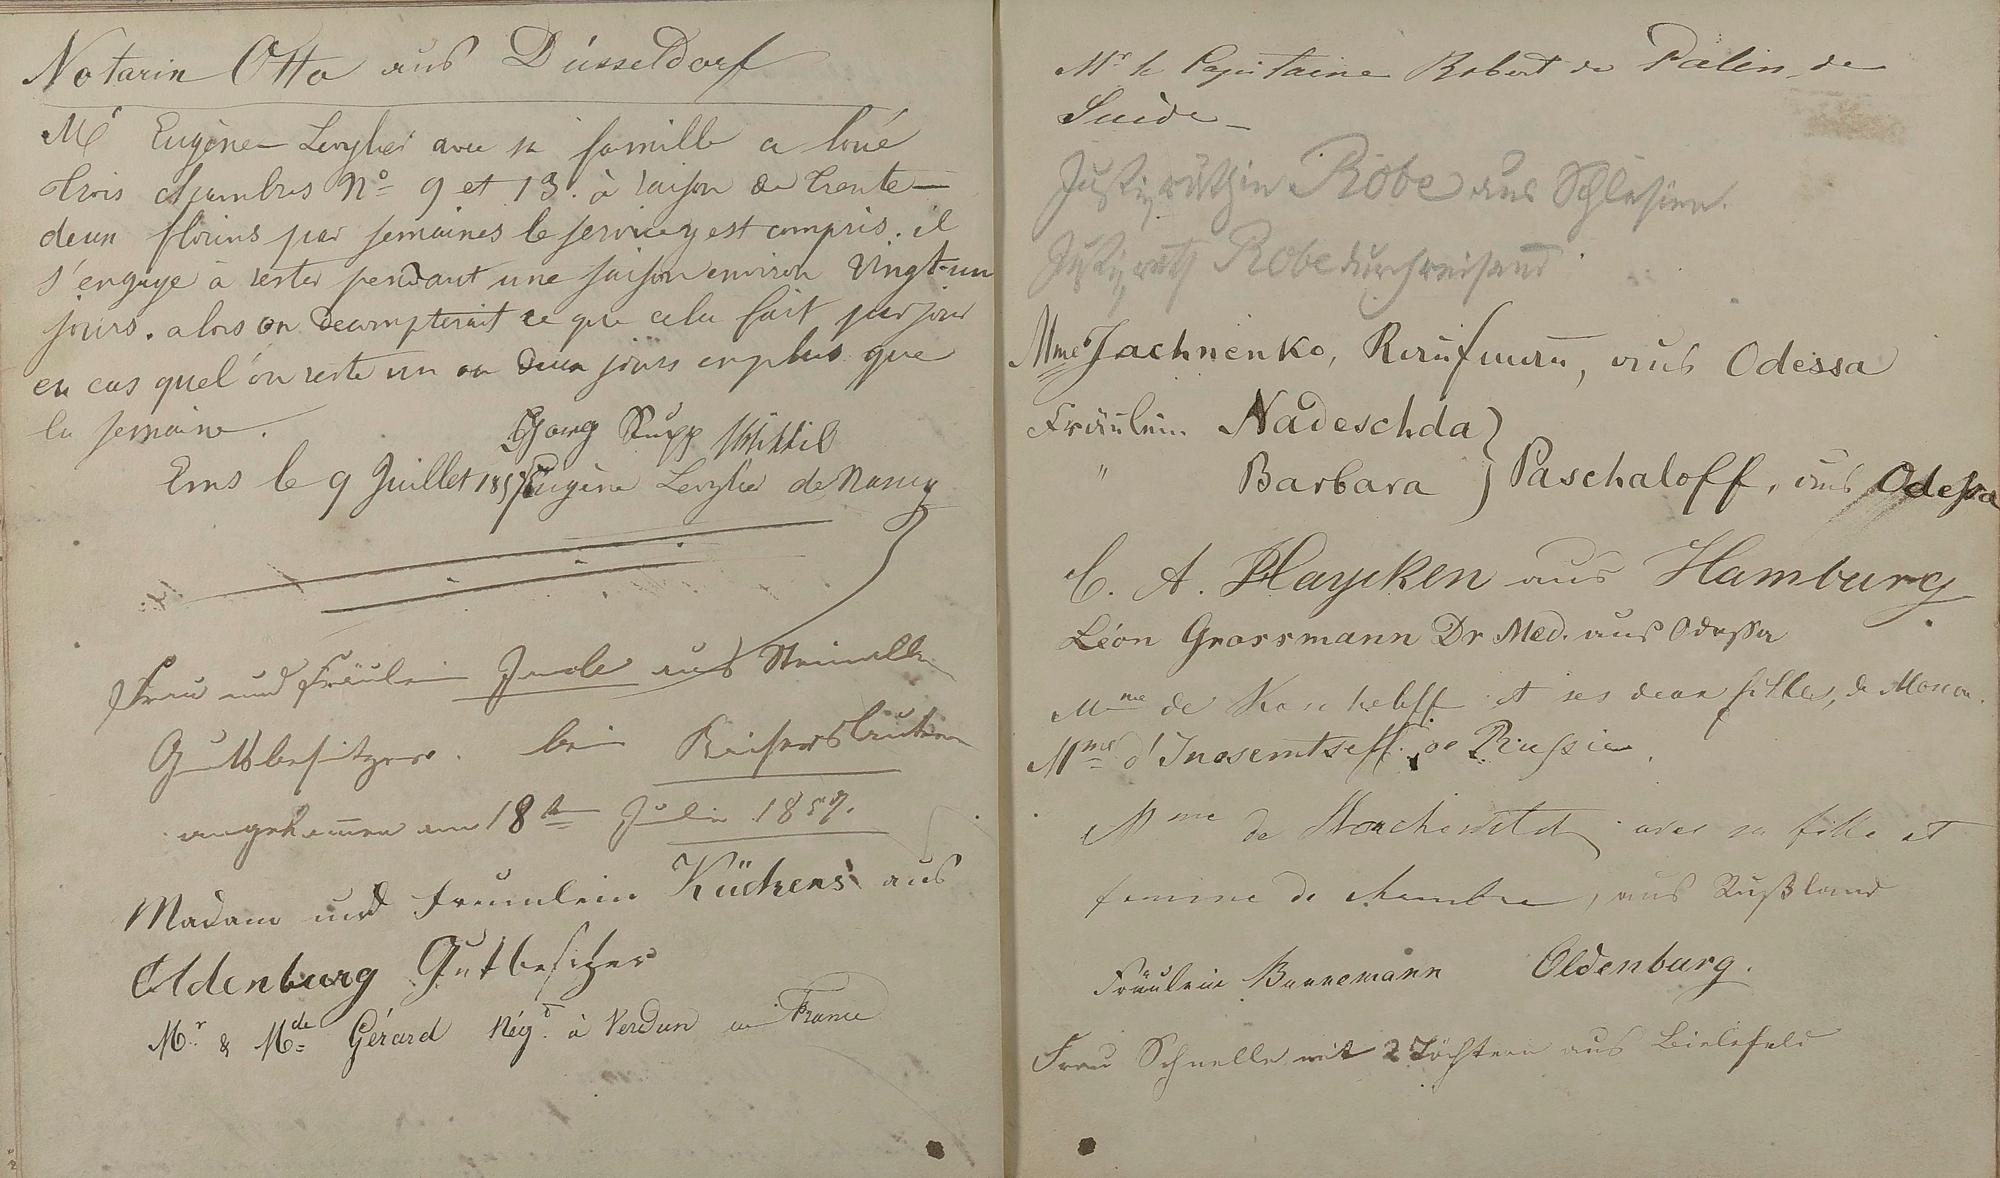 Notarin Otto aus Düsseldorf
Mr Eugène avec sa famille a loué
trois chambres No 9 et 13. à raison de trente
deux florins par semaines le service y est compris. il
s'engage à rester pendant une saison environ vingt-un
jours. alors on decompterait ce que cela fait par jour
en cas quel'on reste un ou deux jours enplus que
la semaine.
Georg Rupp
Ems le 9 Juillet 1857 Eugène de Nancy
Frau und Fräulein aus
Gutsbesitzer. bei Kaiserslautern
angekommen am 18t Juli 1857.
Madame und Freunlein Küchens aus
Oldenburg Gutbesitzer
Mr. & Mde Gérard Négt. à Verdun en France
Mr le Capitaine Robert de Palin de
Suède
Justizräthin Robe aus Schlesien.
Justizrath Robe durchreisend
Mme Jachnenko, Kaufmann, aus Odessa
Fräulein Nadeschda
" Barbara } Paschaloff, aus Odessa
C. A. Haycken aus Hamburg
Léon Grossmann Dr Med. aus Odessa
Mme de Koscheleff et ses deux filles, de Moscou.
Mme d'Inosemtseff de Russie.
Mme de avec sa fille et
femme de chambre, aus Rußland
Fräulein Bannemann Oldenburg.
Frau Schnelle mit 2 Töchtern aus Bielefeld